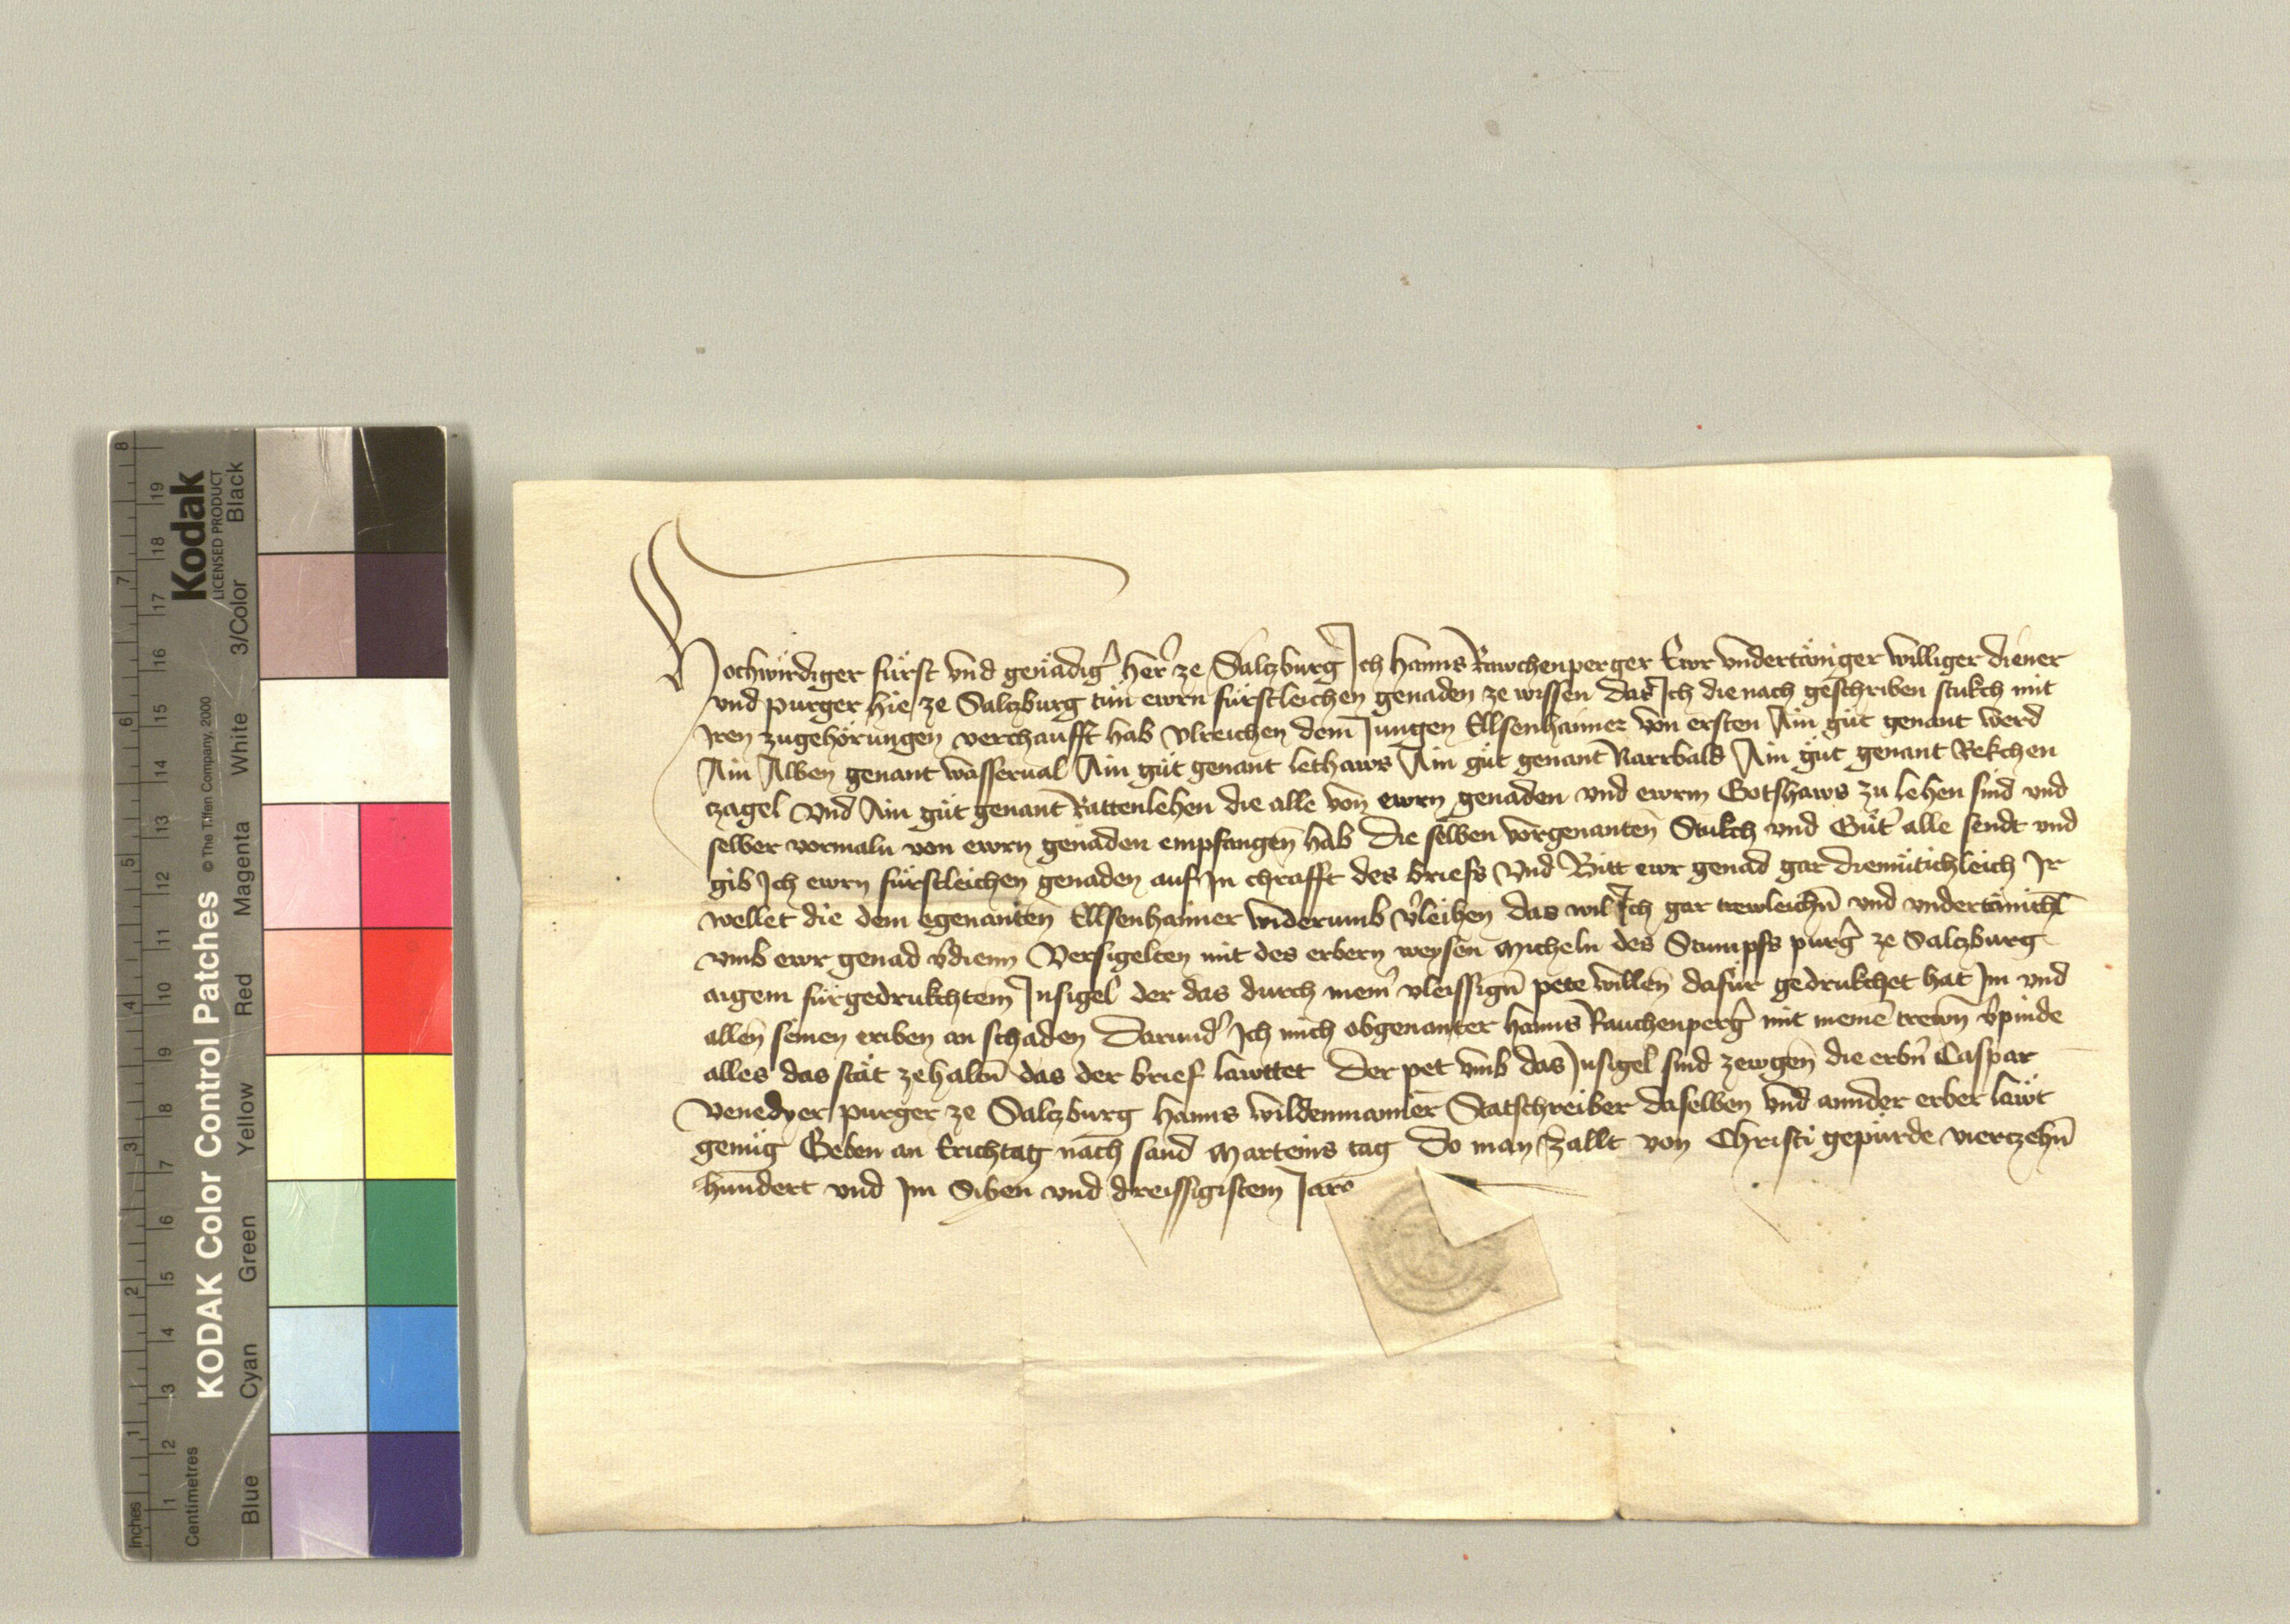 Hochwirdiger fürst vnd genädig' her' ze Salczburg Ich Hanns Rawchenperger Ewr vndertäniger williger diener
vnd purger hie ze Salczburg tün ewrn fürstleichen genaden ze wissen das Ich die nach geschriben stukch mit
Iren zugehörungen verchaufft hab vlreichen dem Jungen Ellsenhaimer von ersten Ain güt genant werd
Ain Alben genant wasserual Ain güt genant lethaws Ain güt genant Narrbald Ain güt genant Rekchen
czagel Vnd Ain güt genant Rattenlehen die alle von ewrn genaden vnd ewrm Gotshaws zu lehen sind vnd
selber vormaln von ewrn genaden empfangen hab Die selben vorgenanten Stukch vnd Güt' alle sendt vnd
gib Ich ewrn fürstleichen genaden auf In chrafft des briefs Vnd Bitt ewr genad gar diemütichleich Ir
wellet die dem egenanten Ellsenhaimer widerumb v'leihen das wil Ich gar trewleichn̄ vnd vndertänichl̄
vmb ewr genad v'dienn Versigelten mit des erbern weysen Micheln des Stumpfs purg' ze Salczburg
aigem fürgedrukchtem Insigel der das durch meiner vleissign̄ pete willen dafür gedrukchet hat Im vnd
allen seinen eriben an schaden Darund' Ich mich obgenanter Hanns Rauchenperg' mit meinē trewn̄ v'pinde
alles das stät ze haltn̄ das der brief lawttet Der pet vmb das Insigel sind zewgen die erbn̄ Caspar
Venedyer purger ze Salczburg Hanns wildenmanner Statschreiber daselben vnd annder erber läwt
genüg Geben an Erichtag nach sand Marteins tag Do man zallt von Christi gepürde vierczehn̄
hundert vnd Im Siben vnd dreissigistem Jare
KODAK Color Control Patches © The Tiffen Company, 2000
Kodak
LICENSED PRODUCT
Inches 1 2 3 4 5 6 7 8
Centimetres 1 2 3 4 5 6 7 8 9 10 11 12 13 14 15 16 17 18 19
Blue Cyan Green Yellow Red Magenta White 3/Color Black